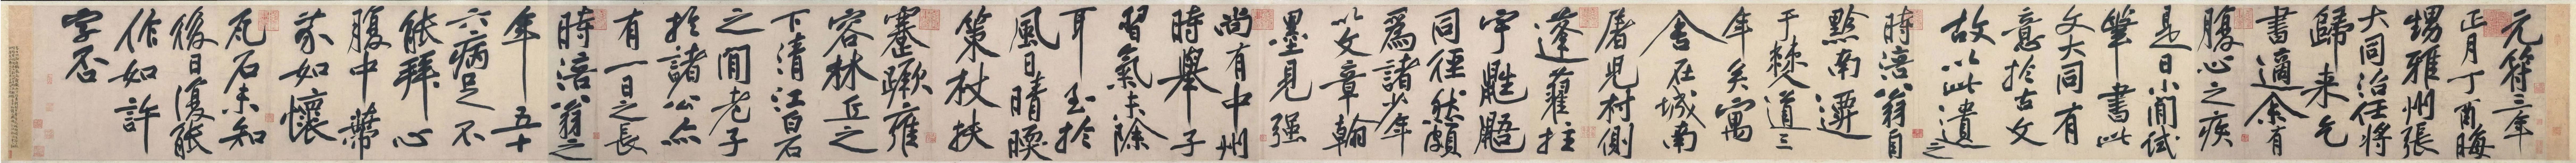 元符三年
正月丁酉晦
甥雅州張
大同治任將
歸来乞
書適余有
腹心之疾
是日小閒試
筆書此
文大同有
意於古文
故以此遺之
時涪翁自
黔南遷
于僰道三
年矣寓
舍在城南
屠兒村側
蓬藋拄
宇鼪鼯
同徑然頗
爲諸少年
以文章翰
墨見强
尚有中州
時舉子
習氣未除
耳至於
風日晴暖
策杖扶
蹇蹶雍
容林丘之
下清江白石
之閒老子
於諸公亦
有一日之長
時涪翁之
年五十
六病足不
能拜心
腹中蔕
芥如懷
瓦石未知
後日復能
作如許
字否